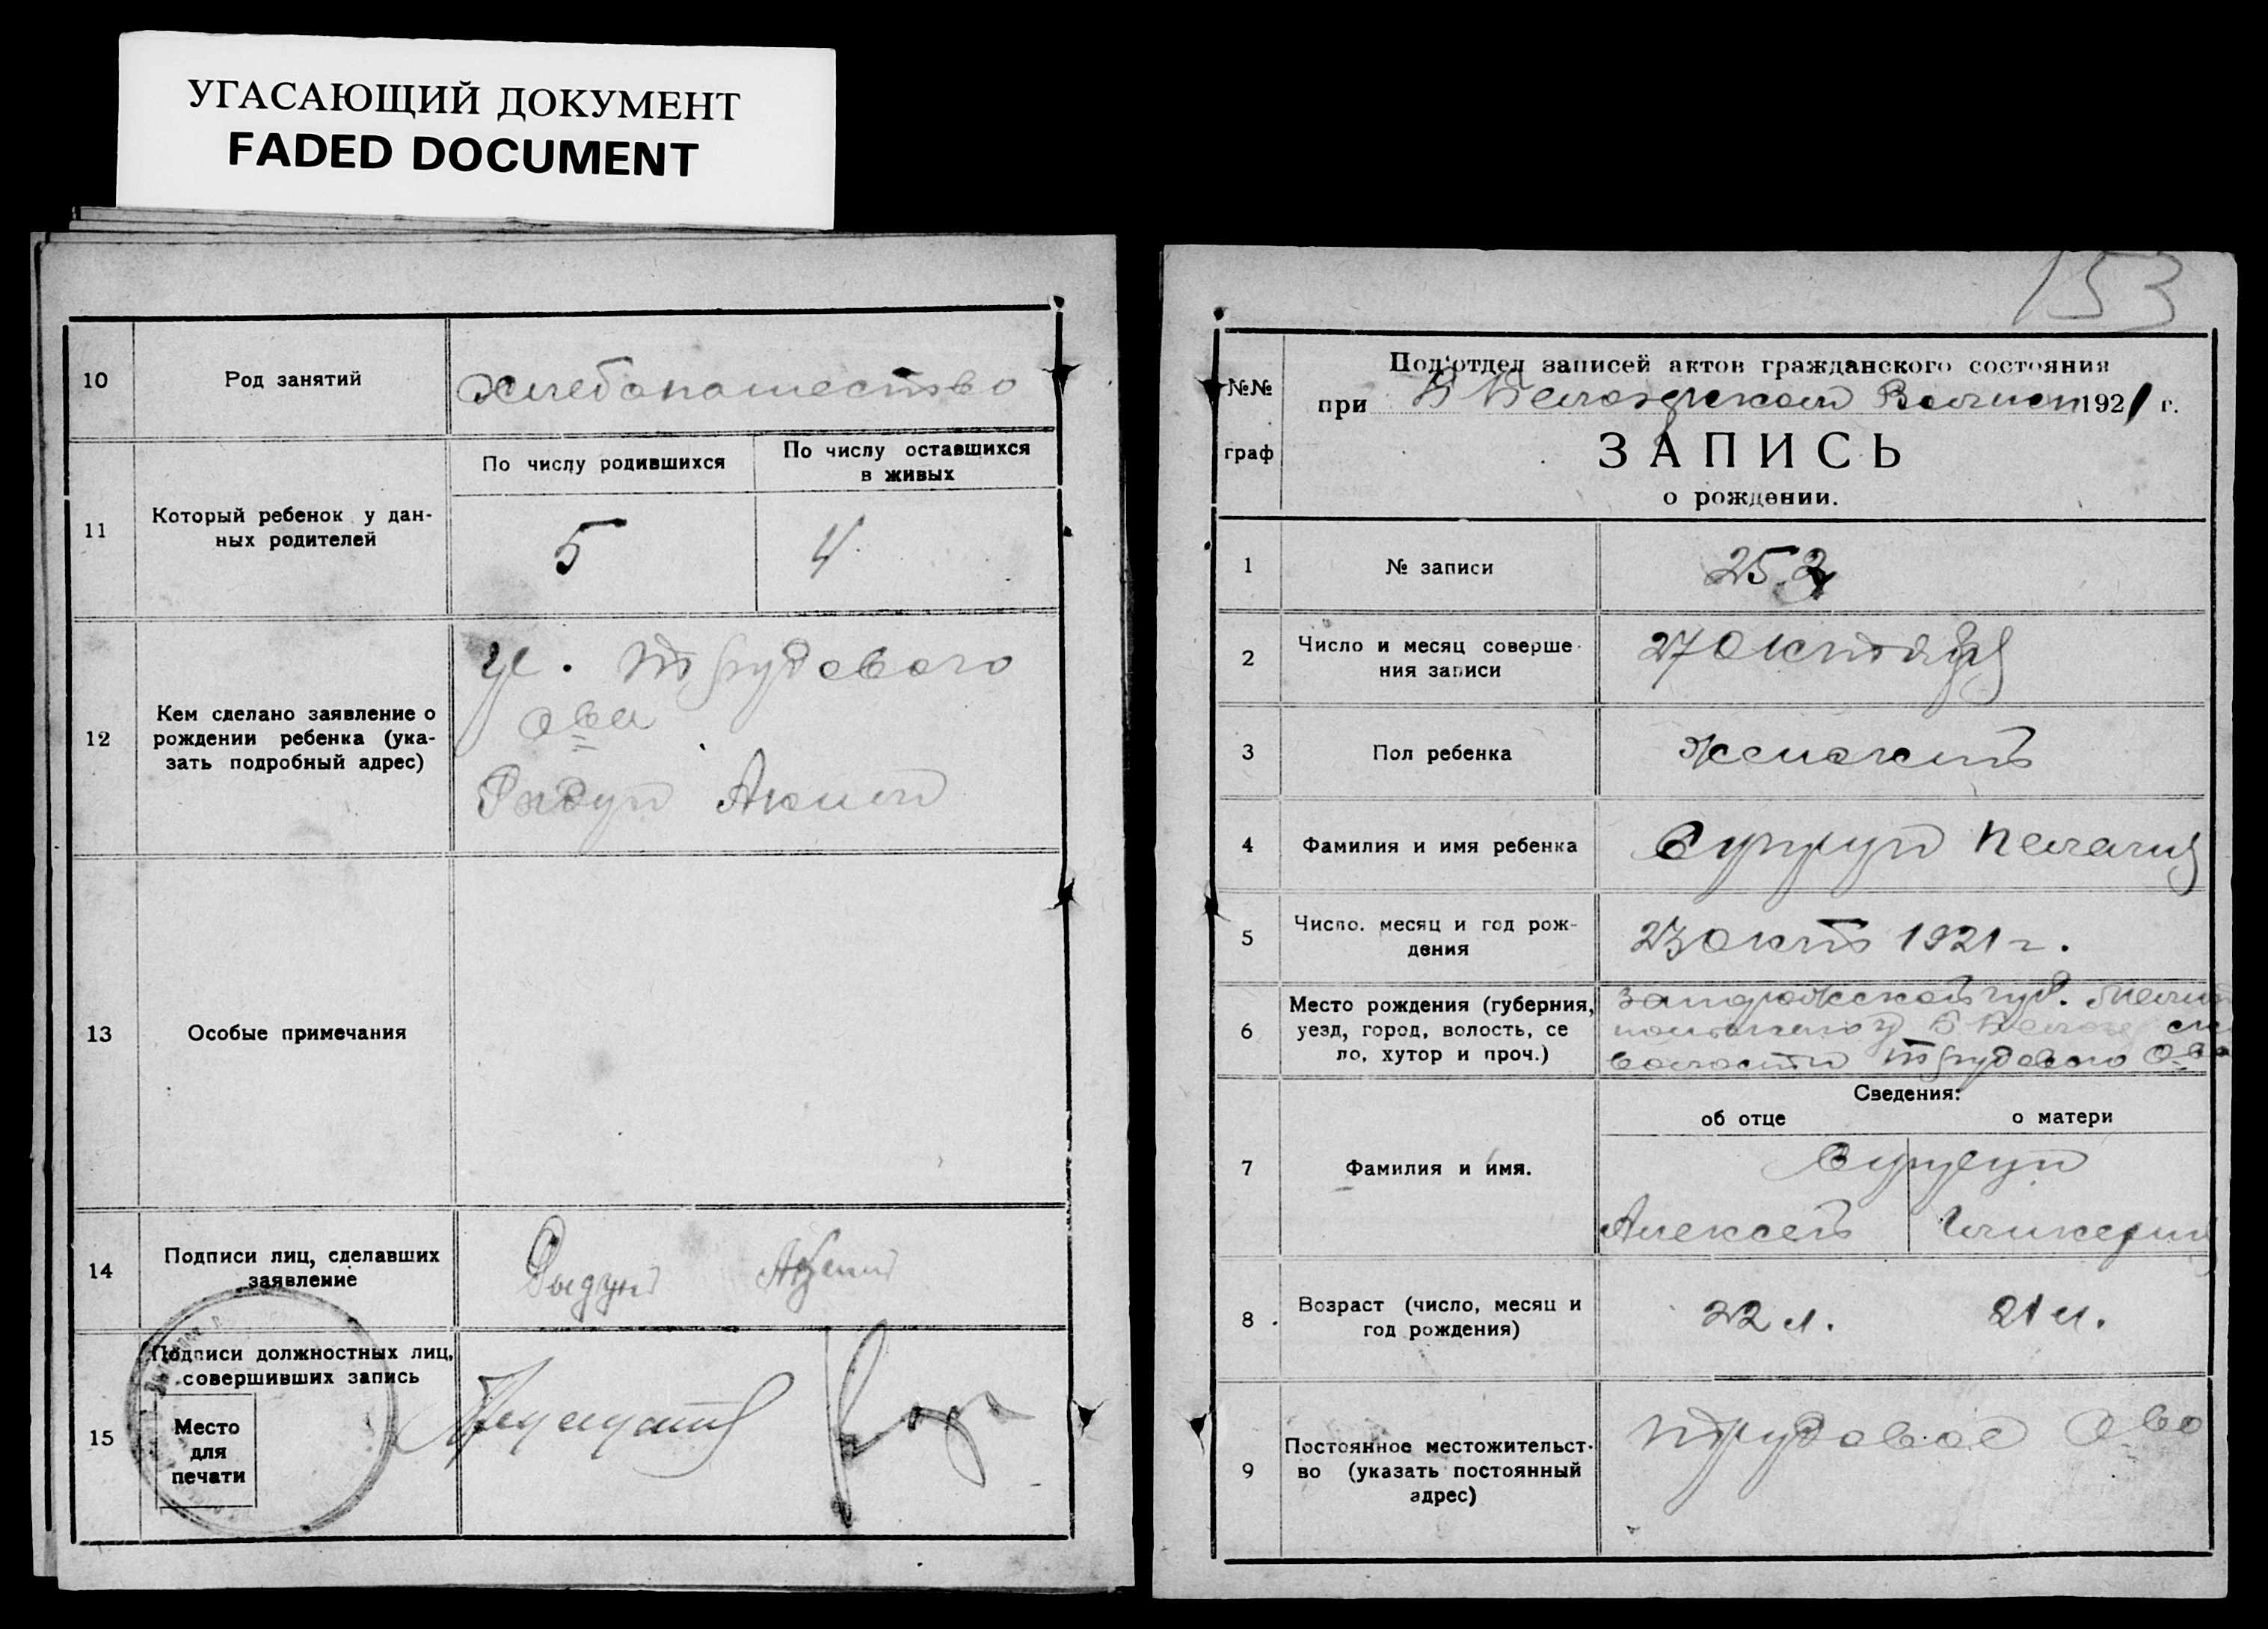 УГАСАЮЩИЙ ДОКУМЕНТ
FADED DOCUMENT
10
Род занятий
хлебопашество
11
Который ребенок у дан-
ных родителей
По числу родившихся
По числу оставшихся
в живых
5
4
12
Кем сделано заявление о
рождении ребенка (ука-
зать подробный адрес)
Трудового
ова
13
Особые примечания
14
Подписи лиц, сделавших
заявление
15
Подписи должностных лиц,
совершивших запись
Место
для
печати
153
№№
граф
Под'отдел записей актов гражданского состояния
при Б Белозерском 1921 г.
ЗАПИСЬ
о рождении.
1
№ записи
252
2
Число и месяц соверше-
ния записи
27 октября
3
Пол ребенка
женский
4
Фамилия и имя ребенка
Супрун Пелагия
5
Число, месяц и год рож-
дения
23 окт 1921 г.
6
Место рождения (губерния,
уезд, город, волость, се
ло, хутор и проч.)
Запорожской губ. Мелит
Б Белозерск
волости Трудового О-ва
Сведения:
об отце
о матери
7
Фамилия и имя.
Супрун
Алексей
Гликерия
8
Возраст (число, месяц и
год рождения)
22 л.
21 л.
9
Постоянное местожительст-
во (указать постоянный
адрес)
Трудовое О-во